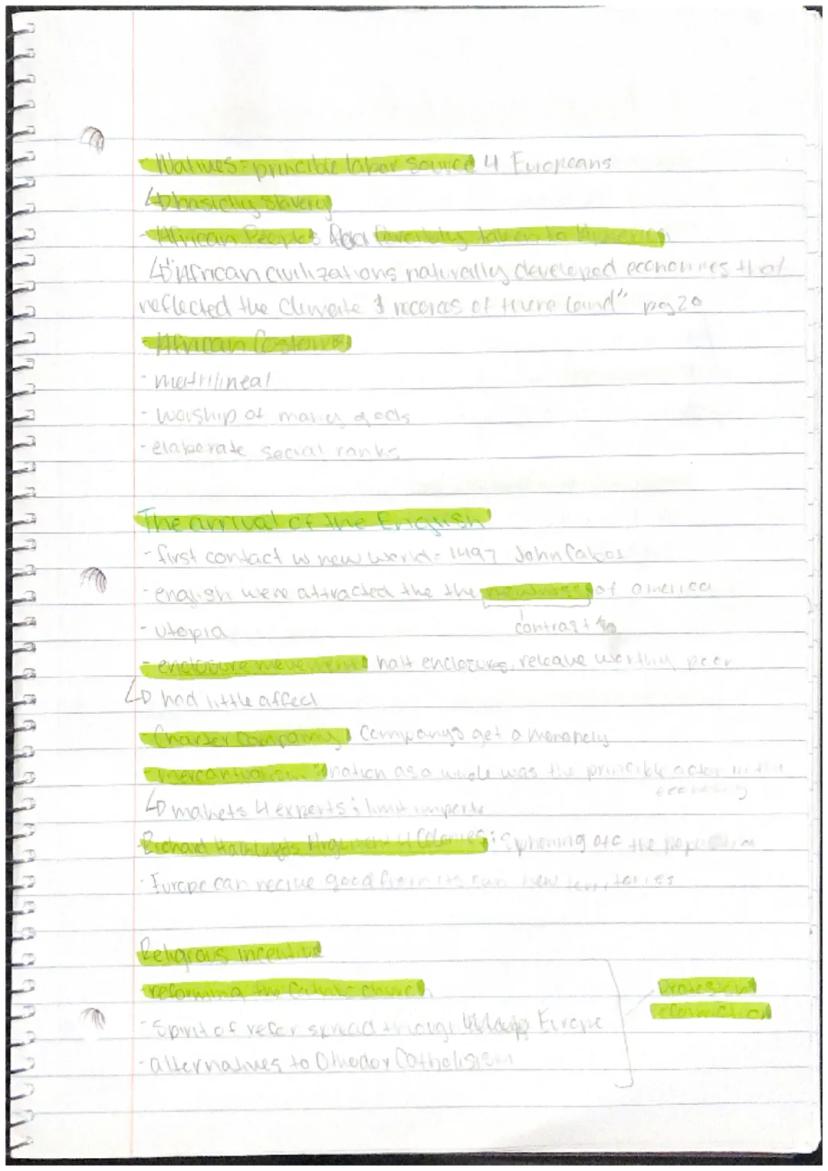 - Natives = principle labor source 4 Europeans
↳ basiclly slavery
- African Peoples forcibly taken to
↳ "African civilizations naturally developed economies that
reflected the climate & of there land" pg 20
- African Customs
- matrilineal
- worship of many gods
- elaborate social ranks
The arrival of the English
- first contact w new world = 1497 John Cabot
- english were attracted the the of america
- utopia contrast to
- enclosure movement half enclosure, worthy
↳ had little affect
Charter Company Companys get a monopoly
mercantualism: nation as a whole was the principle actor in the
economy
↳ markets 4 exports ; limit imports
Richard Hakluyts Argument 4 Colonies: siphoning off the population
- Europe can recive good from its own new territories
Religious incentive
reforming the Catholic church Protestant
reformation
- Spirit of refor spread through Europe
- alternatives to Othodor Catholisism